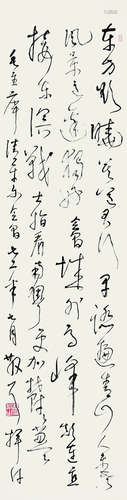 东方欲晓莫道君行早踏遍青山人未老
风景这边独好会昌城外高峰颠连直
接东溟战士指看南粤更加郁郁葱葱
毛主席清平乐会昌 年七月 挥汗